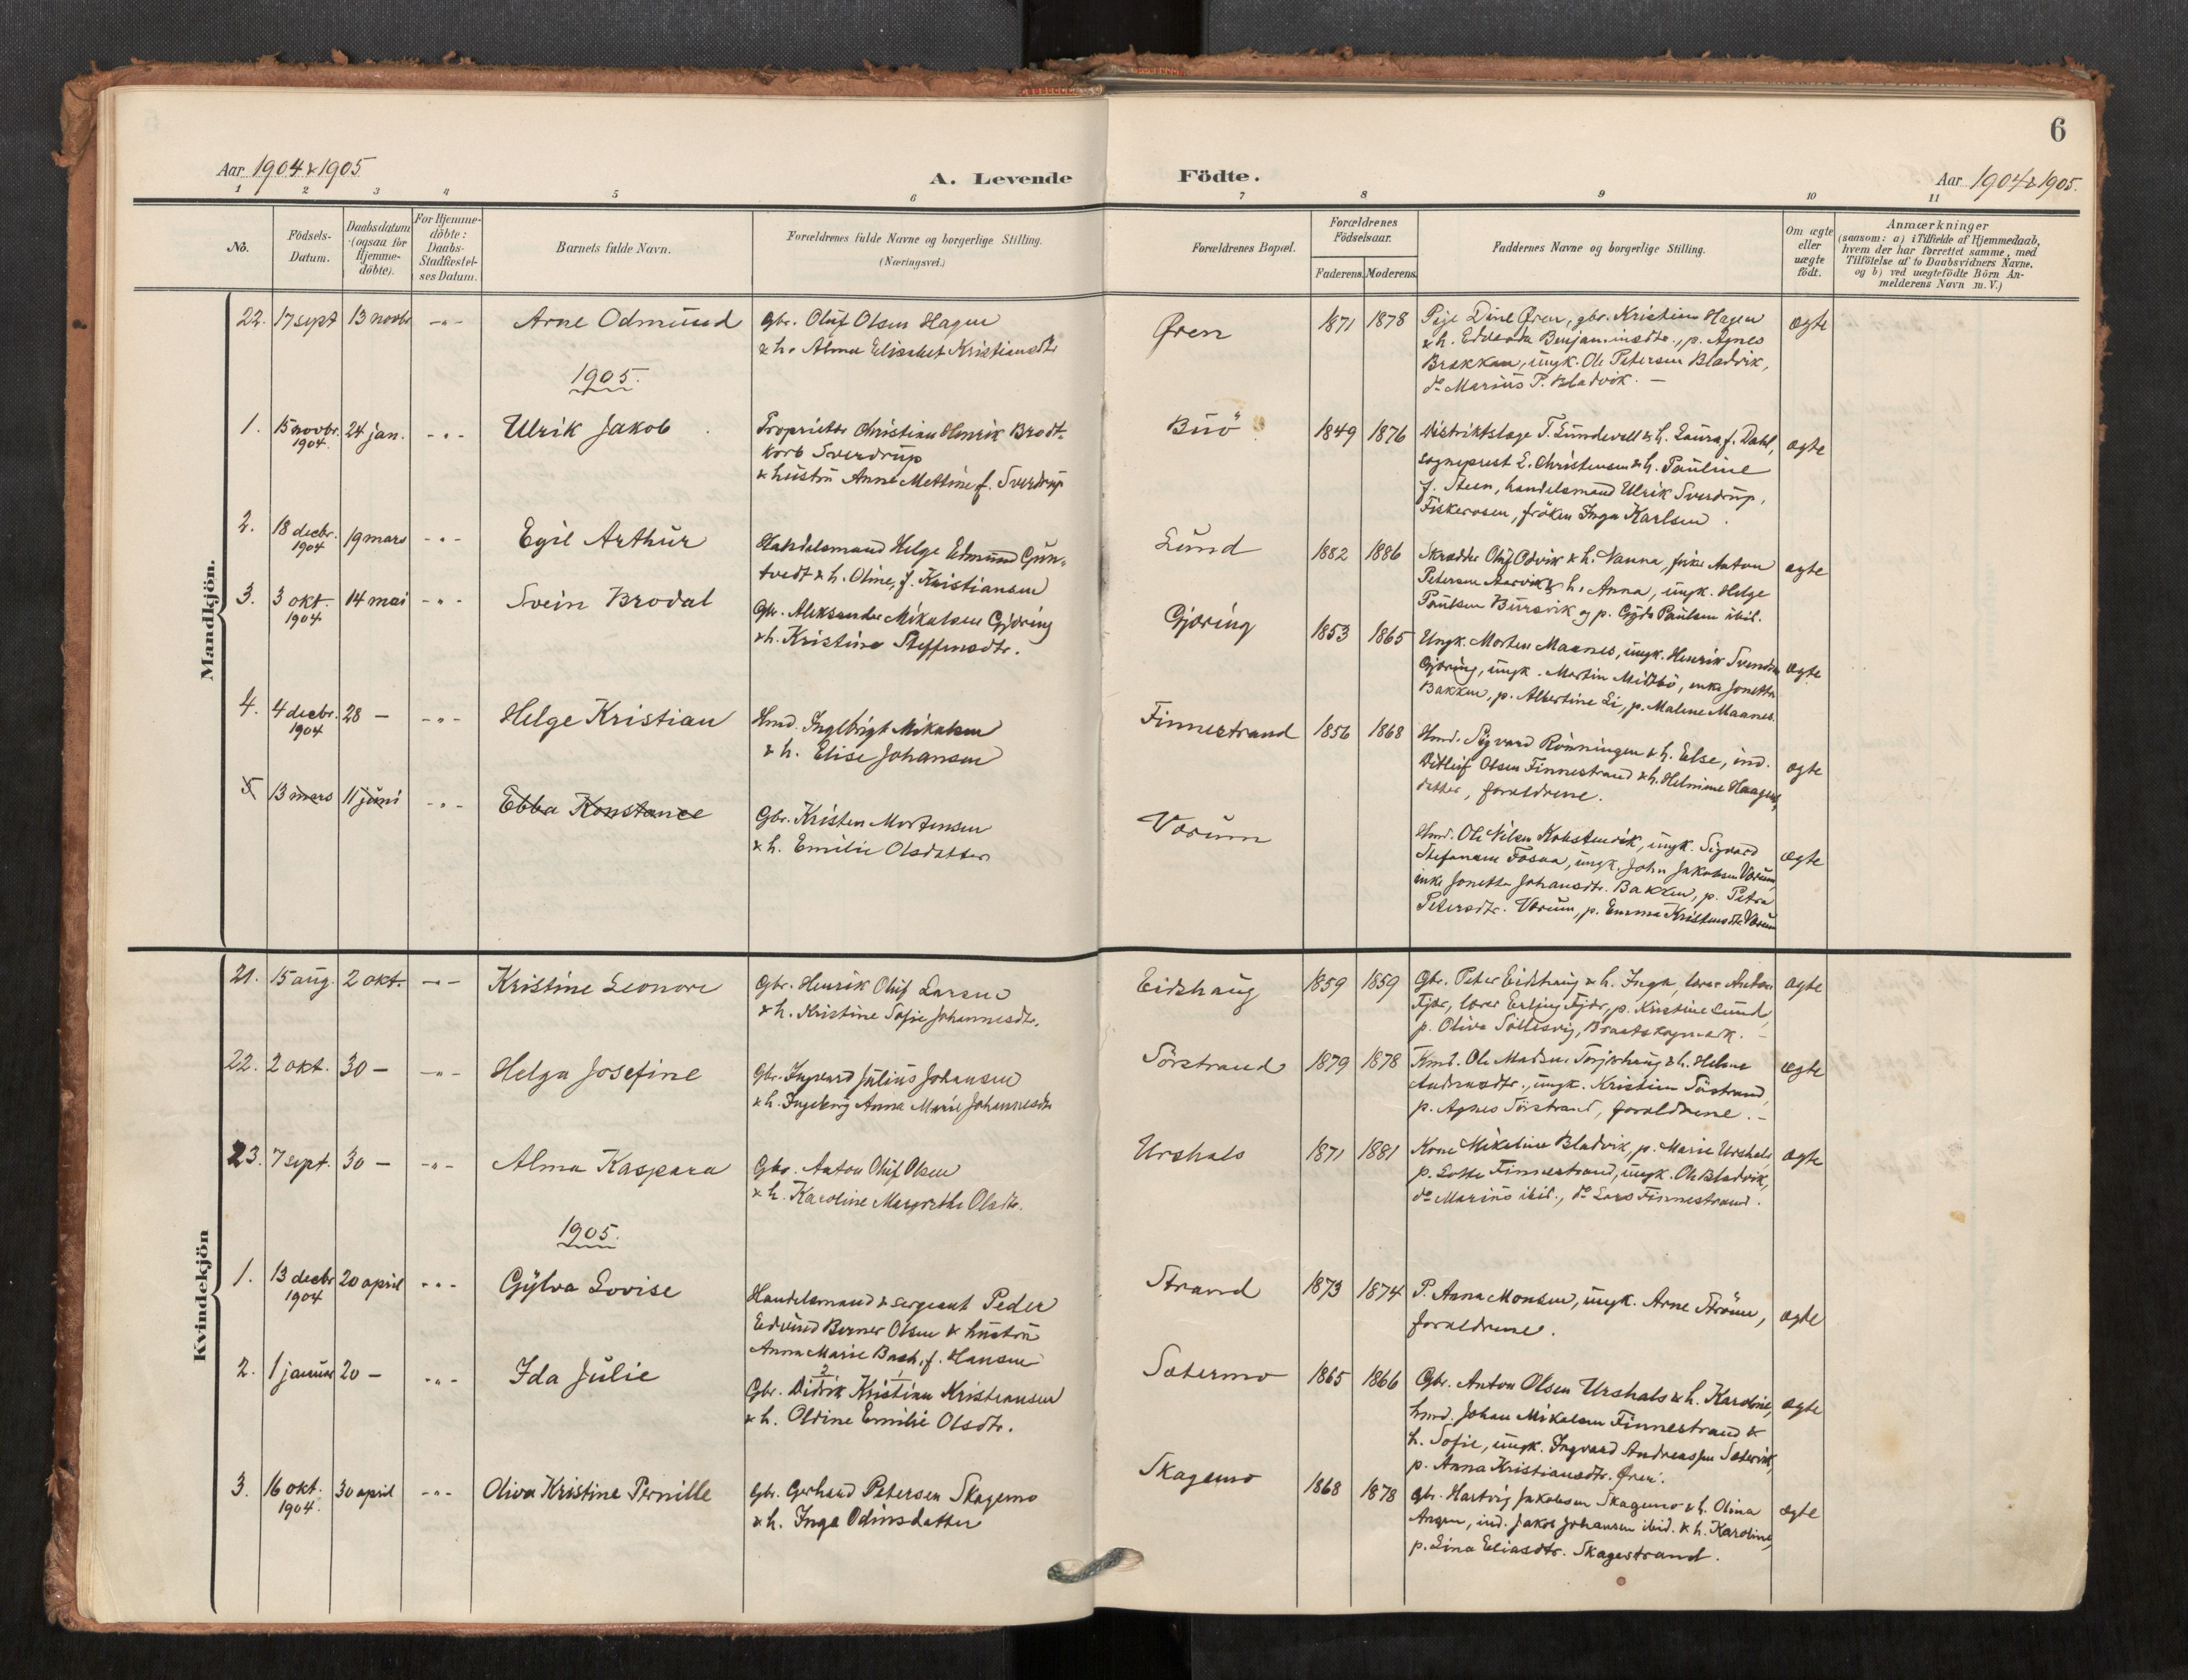 6
Aar 1904 & 1905
A. Levende Födte.
Aar 1904 & 1905.
1 2 3 4 5 6 7 8 9 10 11
No.
Födsels-
Datum.
Daabsdatum
(ogsaa for
Hjemme-
döbte).
For Hjemme-
döbte:
Daabs-
Stadfæstel-
ses Datum.
Barnets fulde Navn.
Forældrenes fulde Navne og borgerlige Stilling.
(Næringsvei.)
Forældrenes Bopæl.
Forældrenes
Födselsaar.
Faderens. Moderens.
Faddernes Navne og borgerlige Stilling.
Om ægte
eller
uægte
födt.
Anmærkninger
(saasom: a) i Tilfælde af Hjemmedaab,
hvem der har forrettet samme, med
Tilföielse af to Daabsvidners Navne.
og b) ved uægtefödte Börn An-
melderens Navn m. V.)
Mandkjön.
22. 17 sept 13 novbr -"- Arne Odmund
Gbr. Oluf Olsen Hagen
& h. Alma Elisabet Kristiansdtr
Øren 1871 1878
Pige Dine Øren, gbr. Kristian Hagen
& h. Edvarda Benjaminsdtr., p. Agnes
Brekkan, ungk. Ole Petersen Bladvik,
do Marius P. Bladvik. –
ægte
1905.
1. 15 novbr. 1904 24 jan. -"- Ulrik Jakob
Proprietær Christian Henrik Brodt-
korb Sverdrup
& hustru Anna Mettine f. Sverdrup
Buö 1849 1876
Distriktslæge T. Lundevall & h. Laura, f. Dahl,
sogneprest L. Christensen & h. Pauline
f. Steen, handelsmand Ulrik Sverdrup,
Fiskerosen, fröken Inga Karlsen.
ægte
2. 18 decbr. 1904 19 mars -"- Egil Arthur
Handelsmand Helge Edmund Gun-
tvedt & h. Oline, f. Kristiansen
Lund 1882 1886
Skrædder Oluf Odvik & h. Nanna, Anton
Petersen Aarvik & h. Anna, ungk. Helge
Paulsen Bursvik og p. Gyda Paulsen ibid.
ægte
3. 3 okt. 1904 14 mai -"- Svein Brodal
Gbr. Aleksander Mikalsen Gjæring
& h. Kristine Steffensdtr.
Gjæring 1853 1865
Ungk. Morten Maanes, ungk. Henrik Svendsen
Gjæring, ungk. Martin Midtbö, enke Jonetta
Bakken, p. Albertine Li, p. Malene Maanes.
ægte
4. 4 decbr. 1904 28 – -"- Helge Kristian
Hmd. Ingebrigt Mikalsen
& h. Elise Johansen
Finnestrand 1856 1868
Hmd. Sigvard Rönningen & h. Else, ind.
Ditleif Olsen Finnestrand & h. Helmine Haagens-
datter, forældrene.
ægte
5 13 mars 11 juni -"- Ebba Konstance
Gbr. Kristen Mortensen
& h. Emilie Olsdatter
Værum
Hmd. Ole Nilsen, ungk. Sigvard
Stefansen Fosaa, ungk. John Jakobsen Værum,
enke Jonetta Johansdtr. Bakken, p. Petra
Petersdtr. Værum, p. Emma Kristensdtr. Værum
ægte
Kvindekjön
21. 15 aug. 2 okt. -"- Kristine Leonore
Gbr. Henrik Oluf Larsen
& h. Kristine Sofie Johannesdtr.
Eidshaug 1859 1859
Gbr. Peter Eidshaug & h. Inga, lærer Anton
Fjær, lærer Erling Fjær, p. Kristine Lund,
p. Oliva Söllesvig,
ægte
22. 2 okt. 30 – -"- Helga Josefine
Gbr. Ingvard Julius Johansen
& h. Ingeborg Anna Marie Johannesdtr
Sörstrand 1879 1878
Kmd. Ole Madsen Torjehaug & h. Helene
Andreasdtr., ungk. Kristian Sörstrand,
p. Agnes Sörstrand, forældrene. –
ægte
23. 7 sept. 30 – -"- Alma Kaspara
Gbr. Anton Oluf Olsen
& h. Karoline Margrethe Olsdtr.
Urshals 1871 1881
Kone Mikeline Bladvik, p. Marie Urshals
p. Lotte Finnestrand, ungk. Ole Bladvik,
do Marius ibid., do Lars Finnestrand.
ægte
1905.
1. 13 decbr 1904 20 april -"- Gylva Lovise
Handelsmand & sergeant Peder
Edvind Berner Olsen & hustru
Anna Marie Bach, f. Hansen
Strand 1873 1874
P. Anna Monsen, ungk. Arne Ström,
forældrene.
ægte
2. 1 januar 20 – -"- Ida Julie
Gbr. Didrik Kristian Kristiansen
2 1
& h. Oldine Emilie Olsdtr.
Sætermo 1865 1866
Gbr. Anton Olsen Urshals & h. Karoline,
hmd. Johan Mikalsen Finnestrand &
h. Sofie, ungk. Ingvard Andreassen Sætervik,
p. Anna Kristiansdtr. Øren.
ægte
3. 16 okt. 1904. 30 april -"- Oliva Kristine Pernille
Gbr. Gerhard Petersen Skagemo
& h. Inga Odinsdatter
Skagemo 1868 1878
Gbr. Hartvig Jakobsen Skagemo & h. Olina
Angen, ind. Jakob Johansen ibid. & h. Karoline,
p. Lina Eliasdtr. Skagestrand.
ægte